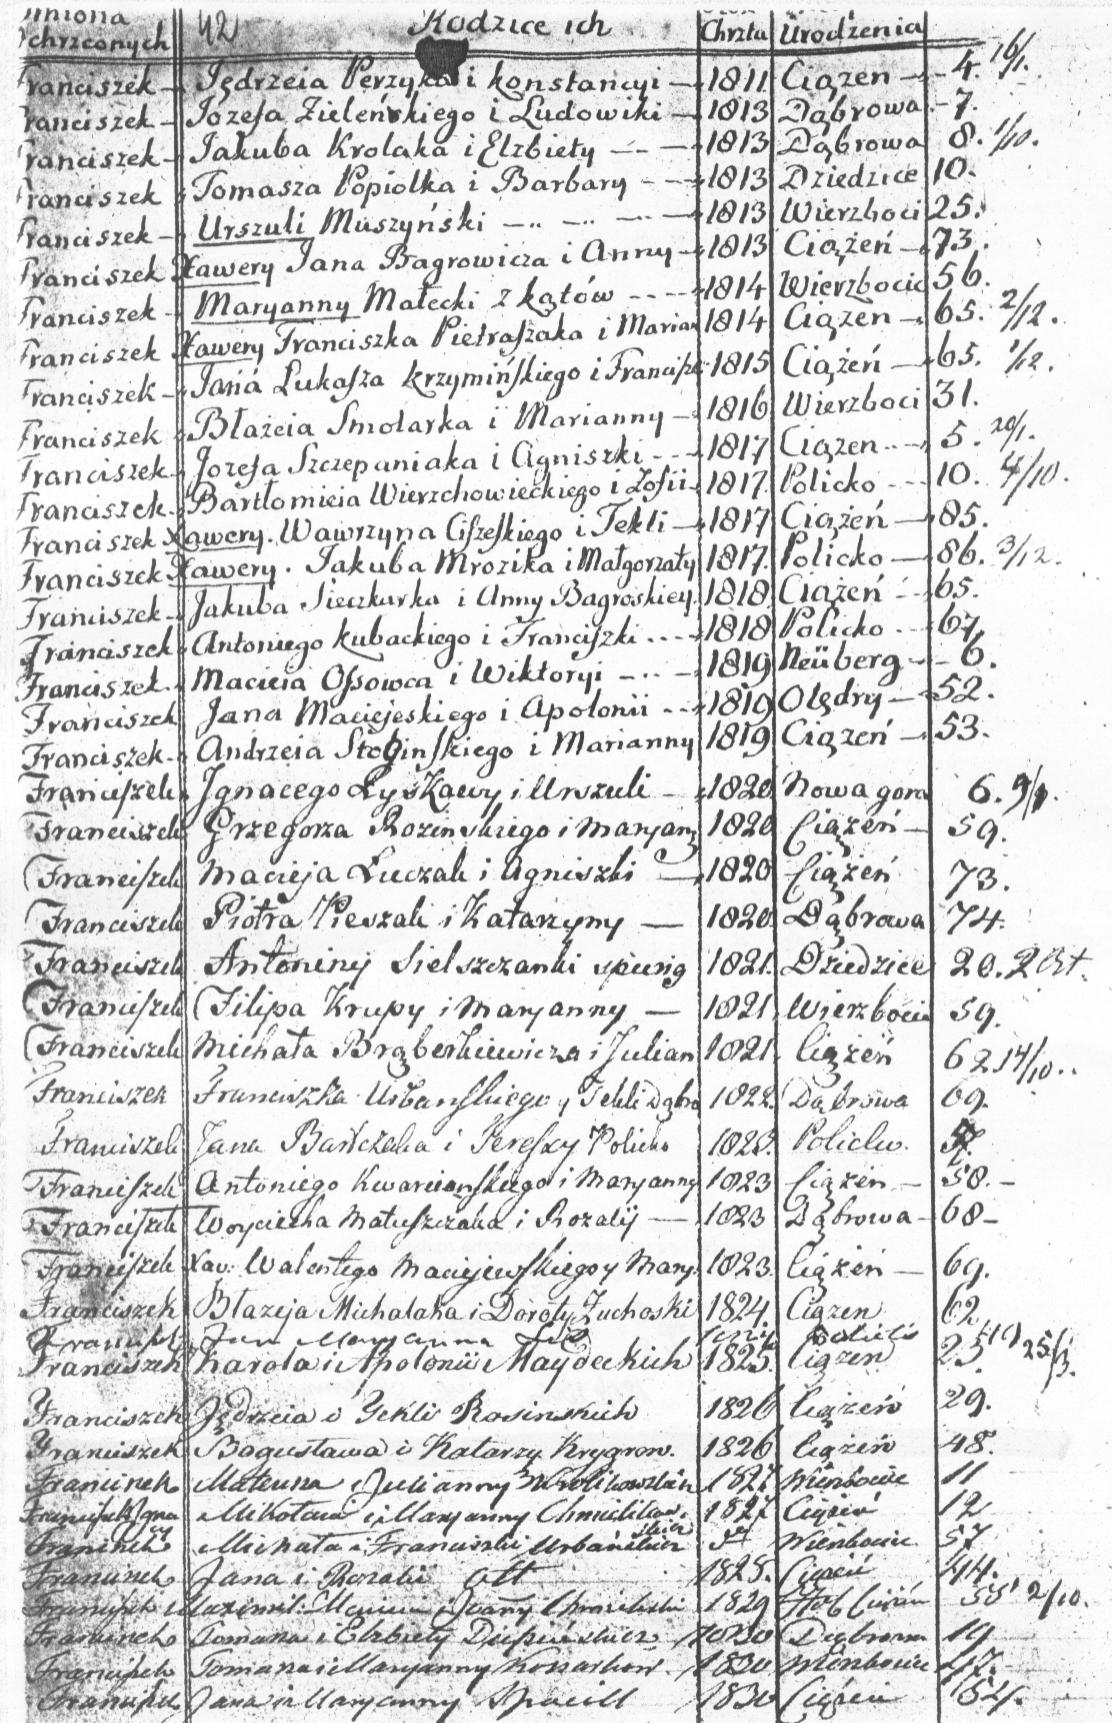 Imiona chrzconych 42 Rodzice ich Chrztu Urodzenia
Franciszek Jędrzeia Perzyka i Konstancyi 1811 Ciązen 4. 16/1.
Franciszek Józefa Zieleńskiego i Ludowiki 1813 Dąbrowa 7.
Franciszek Jakuba Krolaka i Elzbiety 1813 Dąbrowa 8. 1/10.
Franciszek Tomasza Popiolka i Barbary 1813 Dziedzice 10.
Franciszek Urszuli Muszyński 1813 Wierzboci 25.
Franciszek Xawery Jana Bagrowicza i Anny 1813 Ciążeń 73.
Franciszek Maryanny Małecki z kątów 1814 Wierzbocic 56.
Franciszek Xawery Franciszka Pietraszaka i Marian 1814 Ciązen 65. 2/12.
Franciszek Jana Lukaſza Krzymińſkiego i Franciſzk 1815 Ciążeń 65. 1/12.
Franciszek Błażeia Smolarka i Marianny 1816 Wierzboci 31.
Franciszek Jozefa Szczepaniaka i Agniszki 1817 Ciązen 5. 20/1.
Franciszek Bartłomieia Wierzchowieckiego i Zofii 1817. Policko 10. 4/10.
Franciszek Xawery. Wawrzyna Ciſzeſkiego i Tekli 1817 Ciążeń 85.
Franciszek Xawery. Jakuba Mrozika i Małgorzaty 1817. Policko 86. 3/12.
Franciszek Jakuba Sieczkarka i Anny Bagroskiey 1818 Ciążeń 65.
Franciszek Antoniego Kubackiego i Franciſzki 1818 Policko 67
Franciszek Macieia Oſsowca i Wiktoryi 1819 Neüberg 6.
Franciszek Jana Maciejeskiego i Apolonii 1819 Olędry 52.
Franciszek Andrzeia Stoginſkiego i Marianny 1819 Ciązeń 53.
Franciſzek Jgnacego Łyskawy i Urszuli 1820 Nowa gora 6.
Franciszek Grzegorza Rozinskiego i Maryany 1820 Ciążeń 59.
Franciſzek Macieja Łuczak i Agniszki 1820 Ciążeń 73.
Franciszek Piotra Pieszak i Katarzyny 1820 Dąbrowa 74.
Franciszek Antoniny Sielszczanki 1821. Dziedzice 20.
Franciſzek Filipa Krupy i Maryanny 1821 Wierzbocic 59.
Franciszek Michała Brąberkiewicza i Julian 1821. Ciążeń 62 14/10.
Franciszek Franciszka Urbanſkiego y Tekli Dąbro 1822. Dąbrowa 69.
Franciszek Jana Bartczaka i Tereſsy Policko 1823. Policko.
Franciſzek Antoniego Kwarcianſkiego i Maryanny 1823 Ciążen 58.
Franciſzek Woyciecha Matuszczaka i Rozalij 1823 Dąbrowa 68
Franciſzek Xav. Walentego Macyewſkiego y Mary. 1823. Ciążeń 69.
Franciszek Błazeja Michalaka i Doroty Zuchoski 1824 Ciązen 62
Jan Maryanna
Franciszek Karola i Apolonii Maydeckich 1825. Ciązen 25
Franciszek Jędrzeia i Tekli Rosinskich 1826 Ciążeń 29.
Franciszek Bogusława i Katarzy Krygrow. 1826 Ciążeń 48.
Franciszek Mateusza i Julianny Krolikowskich 1827 Wierzbocic 11
Mikołaia i Maryanny 1827 Ciążeń 12
Franciszek Michała i Franciszki Urbańskich Wierzbocic 57
Franciszek Jana i Rozalii Ott 1828. Ciążeń 44.
1829 2/10.
Franciszek Tomasza i Elzbiety 1830 Dąbrowa 19
Franciszek Tomasza i Maryanny 1830 Wierzbocic
Franciszek Jana i Maryanny 1830 Ciążeń